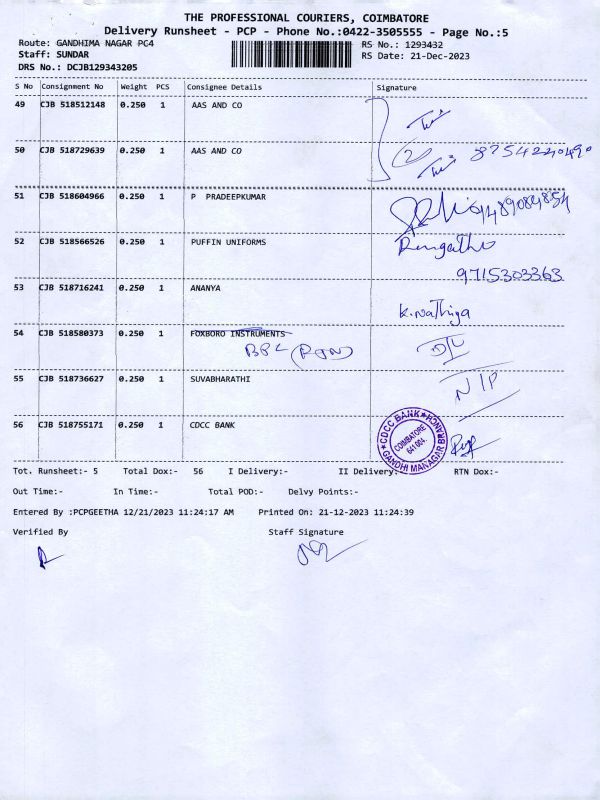 THE PROFESSIONAL COURIERS, COIMBATORE
Delivery Runsheet - PCP - Phone No.:0422-3505555 - Page No.:5
Route: GANDHIMA NAGAR PC4
RS No.: 1293432
Staff: SUNDAR
RS Date: 21-Dec-2023
DRS No.: DCJB129343205
S No Consignment No Weight PCS Consignee Details Signature
49 CJB 518512148 0.250 1 AAS AND CO
50 CJB 518729639 0.250 1 AAS AND CO 2 8754220490
51 CJB 518604966 0.250 1 P PRADEEPKUMAR
52 CJB 518566526 0.250 1 PUFFIN UNIFORMS
9715303363
53 CJB 518716241 0.250 1 ANANYA
K. Nathiya
54 CJB 518580373 0.250 1 FOXBORO INSTRUMENTS
55 CJB 518736627 0.250 1 SUVABHARATHI N/P
56 CJB 518755171 0.250 1 CDCC BANK
CDCC BANK GANDHI MANAGAR BRANCH
COIMBATORE
641 004.
Tot. Runsheet:- 5 Total Dox:- 56 I Delivery:- II Delivery:- RTN Dox:-
Out Time:- In Time:- Total POD:- Delvy Points:-
Entered By :PCPGEETHA 12/21/2023 11:24:17 AM Printed On: 21-12-2023 11:24:39
Verified By Staff Signature